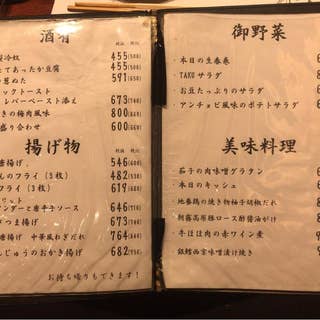 酒肴
税込 税抜
冷奴 455(500)
てあったか豆腐 455(500)
ぬた 591(650)
ックトースト
レバーペースト添え 673(740)
きの梅肉風味 800(880)
盛り合わせ 600(660)
揚げ物
唐揚げ 546(600)
んのフライ(3枚) 482(530)
フライ(3枚) 619(680)
リット
アンダーと唐辛子ソース 673(740)
さつま揚げ 673(740)
唐揚げ 中華風ねぎだれ 764(840)
んじゅうのおかき揚げ 682(750)
お持ち帰りもできます!
御野菜
・本日の生春巻
・TAKOサラダ
・お豆たっぷりのサラダ
・アンチョビ風味のポテトサラダ
美味料理
・茄子の肉味噌グラタン
・本日のキッシュ
・地養鶏の焼き物柚子胡椒だれ
・朝霧高原豚ロース酢醤油がけ
・牛ほほ肉の赤ワイン煮
・銀鱈西京味噌漬け焼き